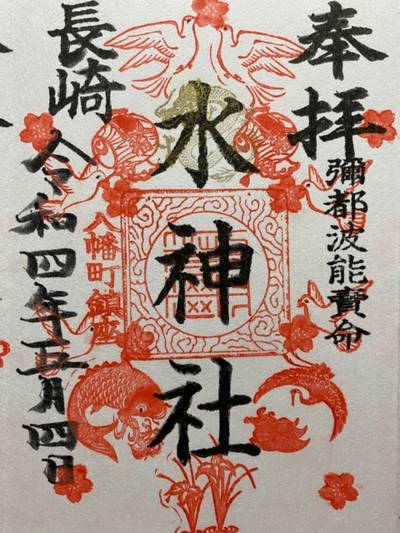 奉拝
彌都波能賣命
水神社
八幡町鎮座
長崎
令和四年五月四日